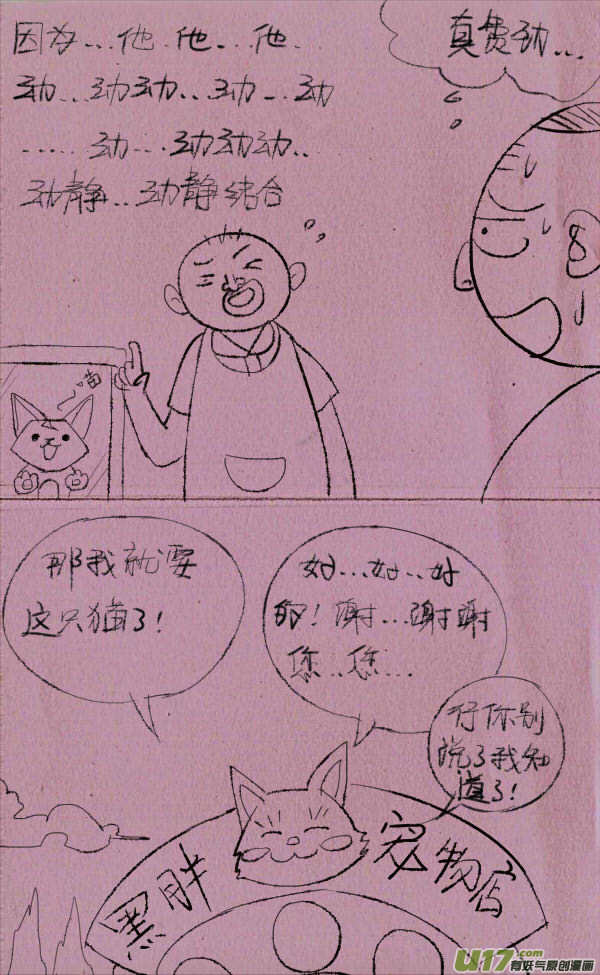 因为...他.他...他.
动...动动..动...动
.....动...动动动..
动静...动静结合
真费劲...
喵
那我就要
这只猫了!
好...好...好
的!谢...谢谢
您..您...
行你别
说了我知
道了!
黑胖宠物店
U17.com
有妖气原创漫画